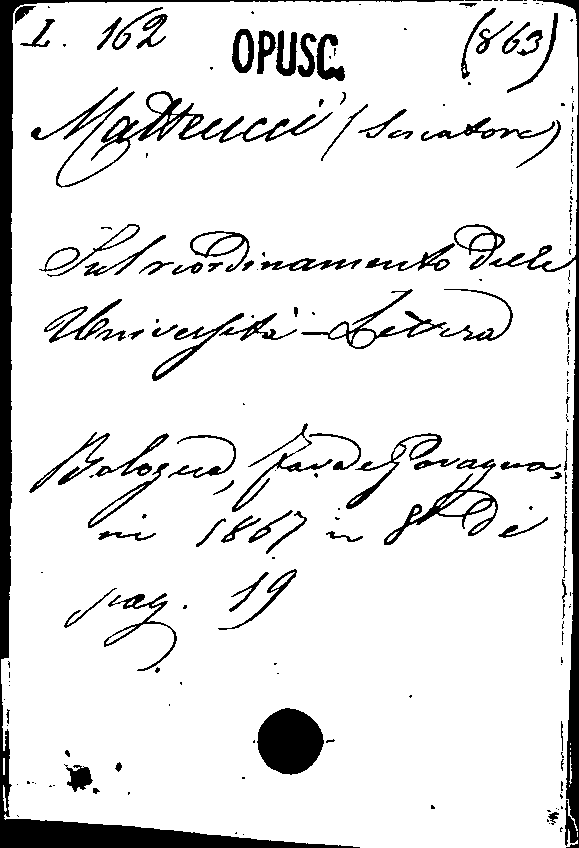 I. 162 OPUSC. (863)
Matteucci (Senatore)
Sul riordinamento delle
Università - Lettera
Bologna, Fava e Garagna-
ni 1867 in 8° di
pag. 19